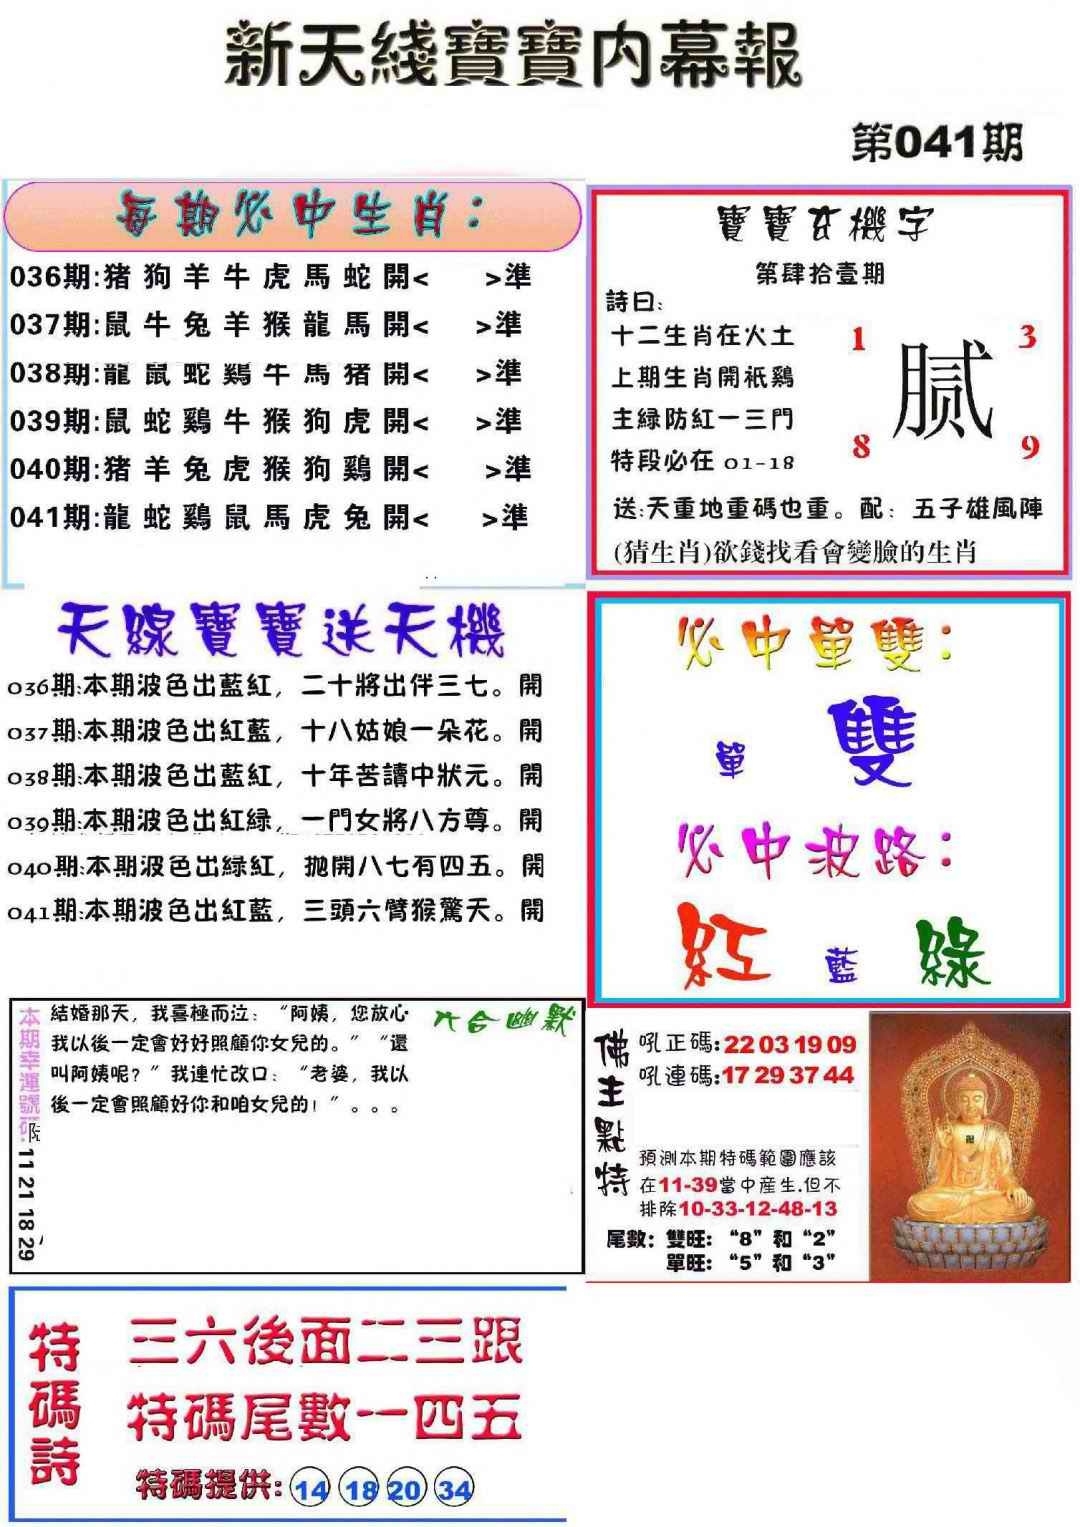 新天綫寶寶内幕報
第041期
每期必中生肖：
036期:猪 狗 羊 牛 虎 馬 蛇 開< >準
037期:鼠 牛 兔 羊 猴 龍 馬 開< >準
038期:龍 鼠 蛇 鷄 牛 馬 猪 開< >準
039期:鼠 蛇 鷄 牛 猴 狗 虎 開< >準
040期:猪 羊 兔 虎 猴 狗 鷄 開< >準
041期:龍 蛇 鷄 鼠 馬 虎 兔 開< >準
寶寶玄機字
第肆拾壹期
詩曰:
十二生肖在火土
上期生肖開祇鷄
主緑防紅一三門
特段必在 01-18
1 3
腻
8 9
送:天重地重碼也重。配：五子雄風陣
(猜生肖)欲錢找看會變臉的生肖
天線寶寶送天機
036期:本期波色出藍紅，二十將出伴三七。開
037期:本期波色出紅藍，十八姑娘一朵花。開
038期:本期波色出藍紅，十年苦讀中狀元。開
039期:本期波色出紅緑，一門女將八方尊。開
040期:本期波色出緑紅，抛開八七有四五。開
041期:本期波色出紅藍，三頭六臂猴驚天。開
必中單雙：
單 雙
必中波路：
紅 藍 綠
本期幸運號碼:
11 21 18 29
六合幽默
結婚那天，我喜極而泣：“阿姨，您放心
我以後一定會好好照顧你女兒的。”“還
叫阿姨呢？”我連忙改口：“老婆，我以
後一定會照顧好你和咱女兒的！”。。。
佛主點特
吼正碼:22 03 19 09
吼連碼:17 29 37 44
預測本期特碼範圍應該
在11-39當中産生.但不
排除10-33-12-48-13
尾數：雙旺：“8”和“2”
單旺：“5”和“3”
特碼詩
三六後面二三跟
特碼尾數一四五
特碼提供: 14 18 20 34